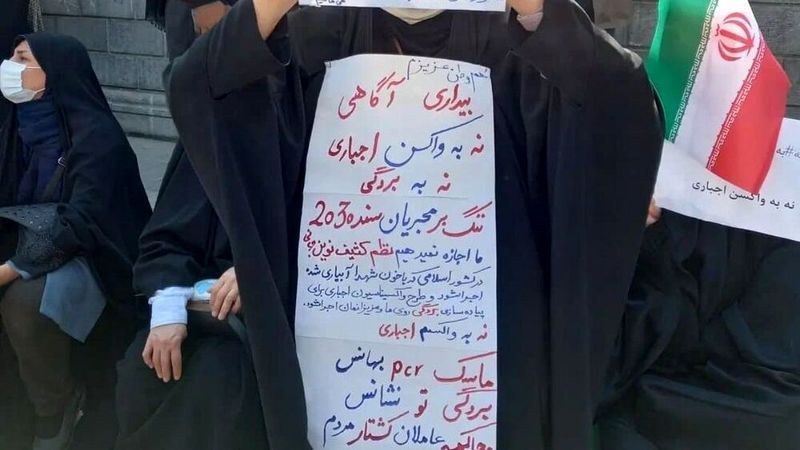 هموطن عزیزم
بیداری آگاهی
نه به واکسن اجباری
نه به بردگی
ننگ بر مجریان سند 2030
ما اجازه نمیدهیم نظم کثیف نوین جهانی
در کشور اسلامی که با خون شهدا آبیاری شد
اجرا شود و طرح واکسیناسیون اجباری برای
پیاده سازی بردگی روی ما و عزیزانمان اجرا شود.
نه به واکسن اجباری
ماسک pcr بهانس
بردگی تو نشانس
عاملان کشتار مردم
نه به واکسن اجباری